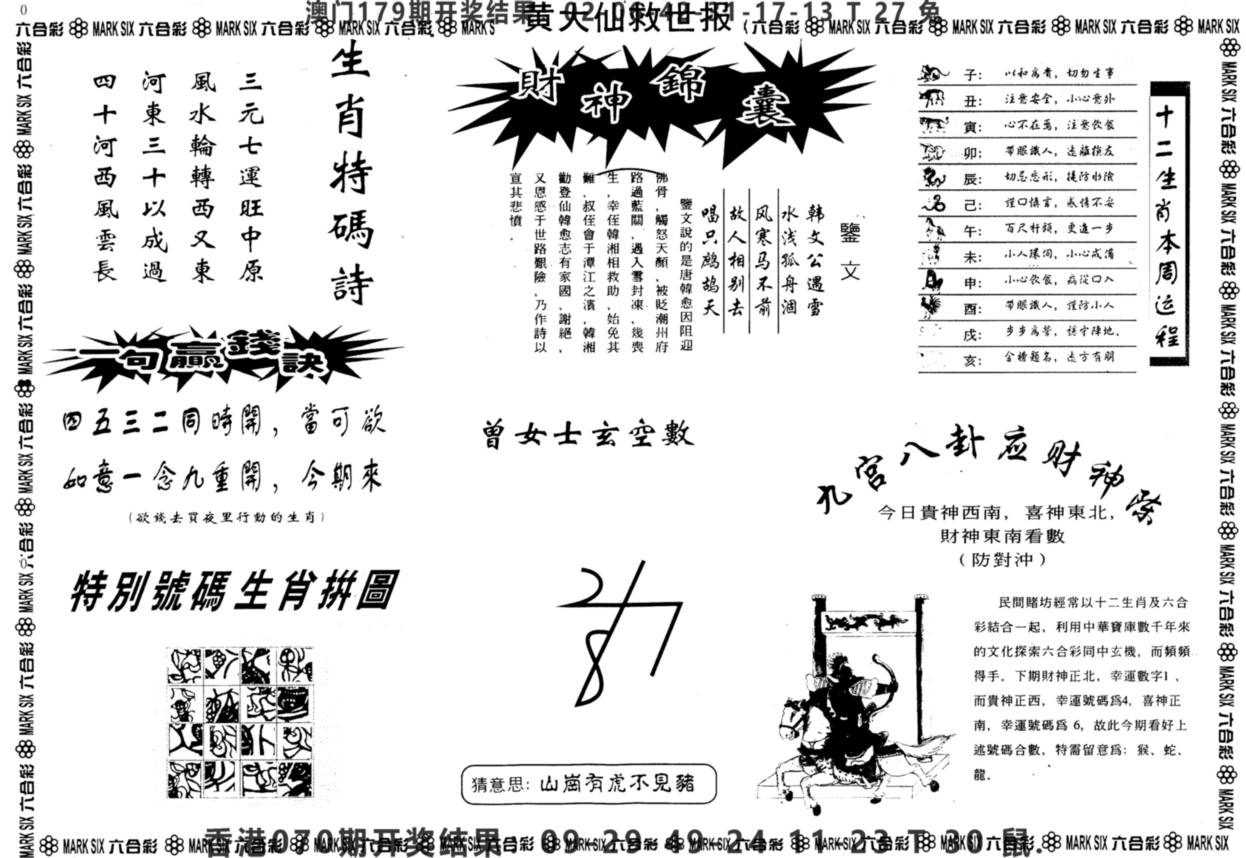 黄大仙救世报
澳门179期开奖结果
T 27 兔
生肖特碼詩
三元七運旺中原
風水輪轉西又東
河東三十以成過
四十河西風雲長
財神錦囊
鑒文
韩文公遇雪
水浅孤舟涸
风寒马不前
故人相别去
唱只鹧鸪天
鑒文說的是唐韓愈因阻迎
佛骨,觸怒天顏,被貶潮州府
路過藍關,遇入雪封凍,幾喪
生,幸侄韓湘相救助,始免其
難,叔侄會于潭江之濱,韓湘
勸登仙韓愈志有家國,謝絕,
又恩感于世路艱險,乃作詩以
宣其悲憤.
十二生肖本周运程
子: 以和為貴, 切勿生事
丑: 注意安全, 小心意外
寅: 心不在焉, 注意飲食
卯: 带眼識人, 遠離損友
辰: 切忌忘形, 提防水險
己: 謹口慎言, 感情不妥
午: 百尺杆頭, 更進一步
未: 小人環伺, 小心戒備
申: 小心飲食, 病從口入
酉: 带眼識人, 谨防小人
戌: 步步為營, 謹守陣地,
亥: 金榜題名, 遠方有朋
一句贏錢訣
四五三二同時開, 當可欲
如意一念九重開, 今期來
(欲錢去買夜里行動的生肖)
曾女士玄空數
九宫八卦应财神祭
今日貴神西南, 喜神東北,
財神東南看數
(防對沖)
特別號碼生肖拼圖
民間賭坊經常以十二生肖及六合
彩結合一起, 利用中華寶庫數千年來
的文化探索六合彩同中玄機, 而頻頻
得手. 下期財神正北, 幸運數字1 ,
而貴神正西, 幸運號碼爲4, 喜神正
南, 幸運號碼爲 6, 故此今期看好上
述號碼合數, 特需留意爲: 猴、蛇、
龍.
猜意思: 山崗有虎不見豬
香港070期开奖结果 09 29 49 24 11 23 T 30 鼠.